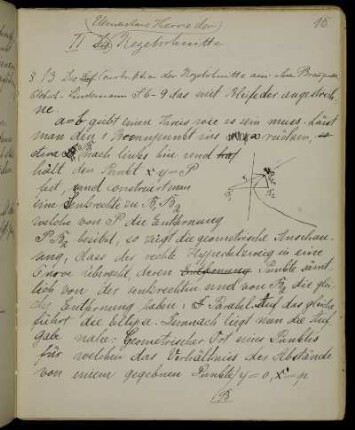 (Elementare Theorie der)
16.
II Kegelschnitte
§ 13 Die Construction der Kegelschnitte aus den Brennp
Clebsch-Lindemann S 6-9 das mit Bleifeder angestrich
ne.
a=b gibt einen Kreis wie es sein muss. Lässt
man den 1 Brennpunkt ins ∞ rücken,
etwa nach links hin und
hält den Punkt x y = P
fest, und construirt man
eine Senkrechte zu F₁ F₂
welche von P die Entfernung
P F₂ besitzt, so zeigt die geometrische Anschau-
ung, dass der rechte Hyperbelzweig in eine
Curve übergeht, deren Punkte sämt
lich von der Senkrechten und von F₂ die glei
che Entfernung haben: d. Parabel. Auf das gleiche
führt die Ellipse. Demnach liegt nun die Auf
gabe nahe: Geometrischer Ort eines Punktes
für welchen das Verhältniss des Abstände
von einem gegebnen Punkte y=0, x=p